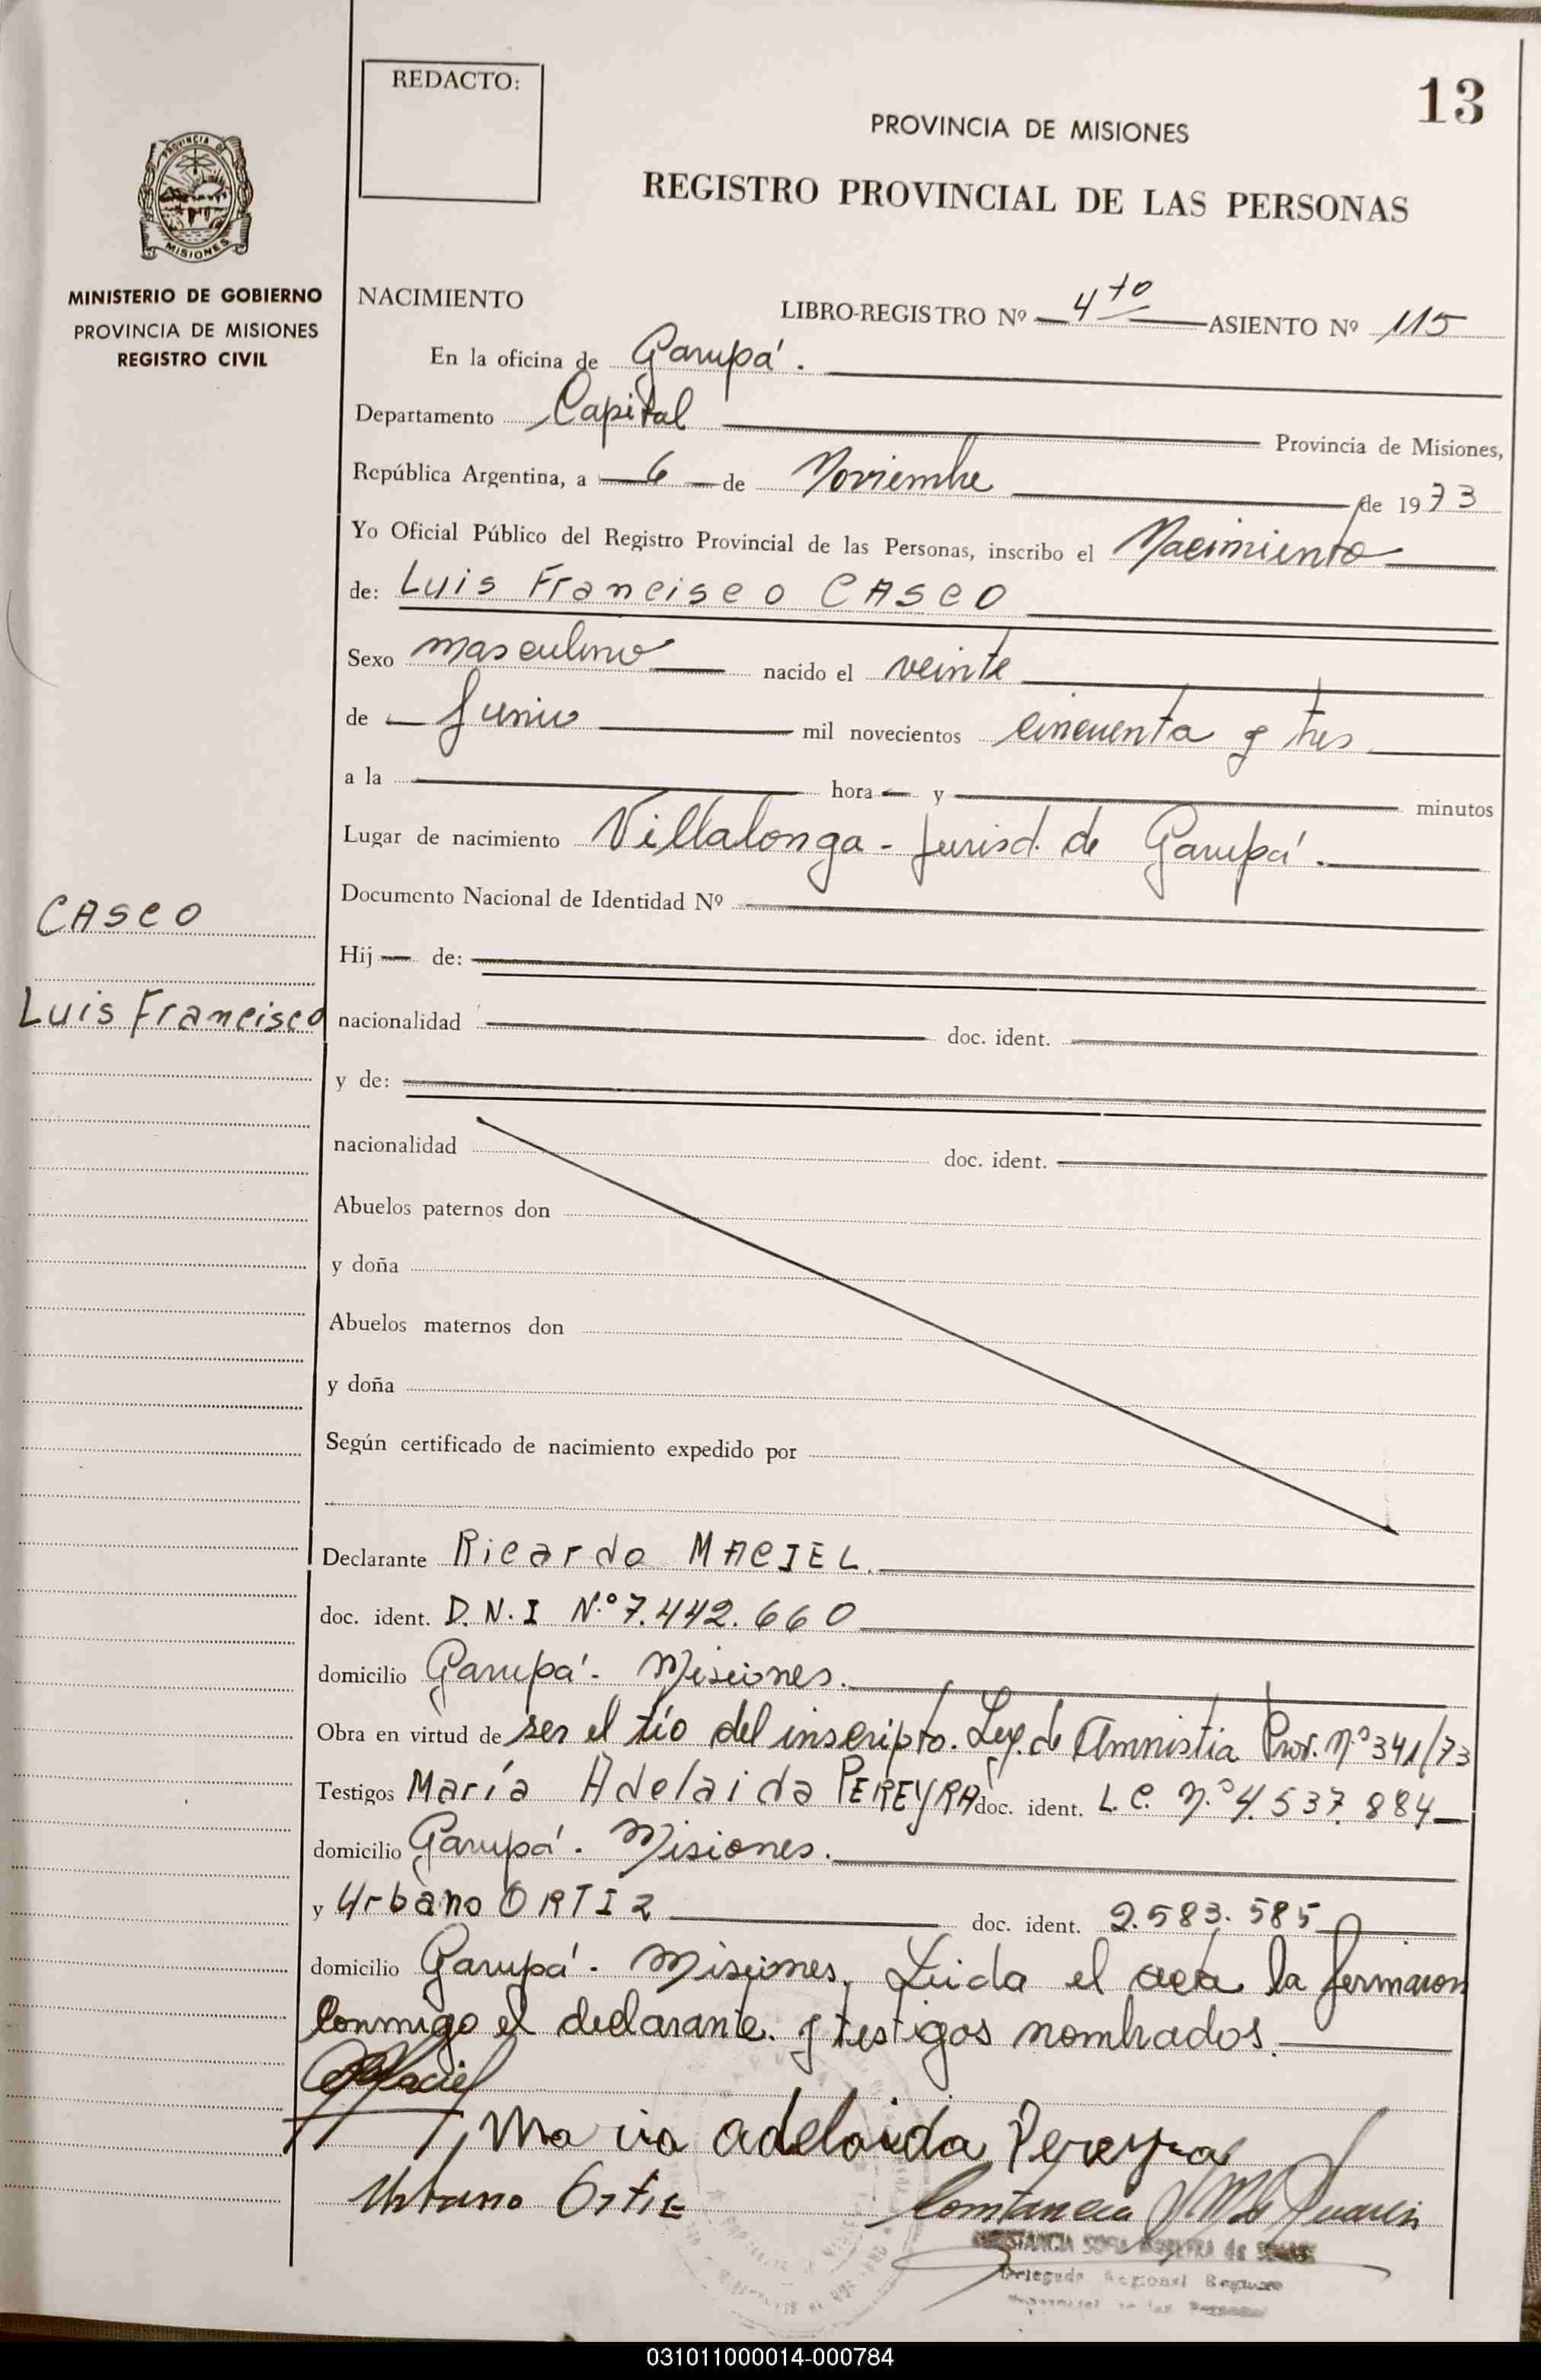 REDACTO:
13
PROVINCIA DE MISIONES
REGISTRO PROVINCIAL DE LAS PERSONAS
PROVINCIA DE
MISIONES
MINISTERIO DE GOBIERNO
PROVINCIA DE MISIONES
REGISTRO CIVIL
NACIMIENTO
LIBRO-REGISTRO Nº 4to ASIENTO Nº 115
En la oficina de Garupá.
Departamento Capital Provincia de Misiones,
República Argentina, a 6 de Noviembre de 1973
Yo Oficial Público del Registro Provincial de las Personas, inscribo el Nacimiento
de: Luis Francisco CASCO
Sexo masculino nacido el veinte
de Junio mil novecientos cincuenta y tres
a la hora y minutos
Lugar de nacimiento Villalonga - Jurisd. de Garupá.
Documento Nacional de Identidad Nº
CASCO
Hij de:
Luis Francisco
nacionalidad doc. ident.
y de:
nacionalidad doc. ident.
Abuelos paternos don
y doña
Abuelos maternos don
y doña
Según certificado de nacimiento expedido por
Declarante Ricardo MACIEL.
doc. ident. D.N.I Nº 7.442.660
domicilio Garupá - Misiones.
Obra en virtud de ser el tío del inscripto. Ley. de Amnistia Prov. Nº 341/73
Testigos María Adelaida PEREYRA doc. ident. L.C. Nº 4.537.884
domicilio Garupá. Misiones.
y Urbano ORTIZ doc. ident. 2.583.585
domicilio Garupá - Misiones. Leida el acta la firmaron
conmigo el declarante. y testigos nombrados.
Maciel
Maria adelaida Pereyra
Urbano Ortiz
Constancia
Delegada Regional
031011000014-000784